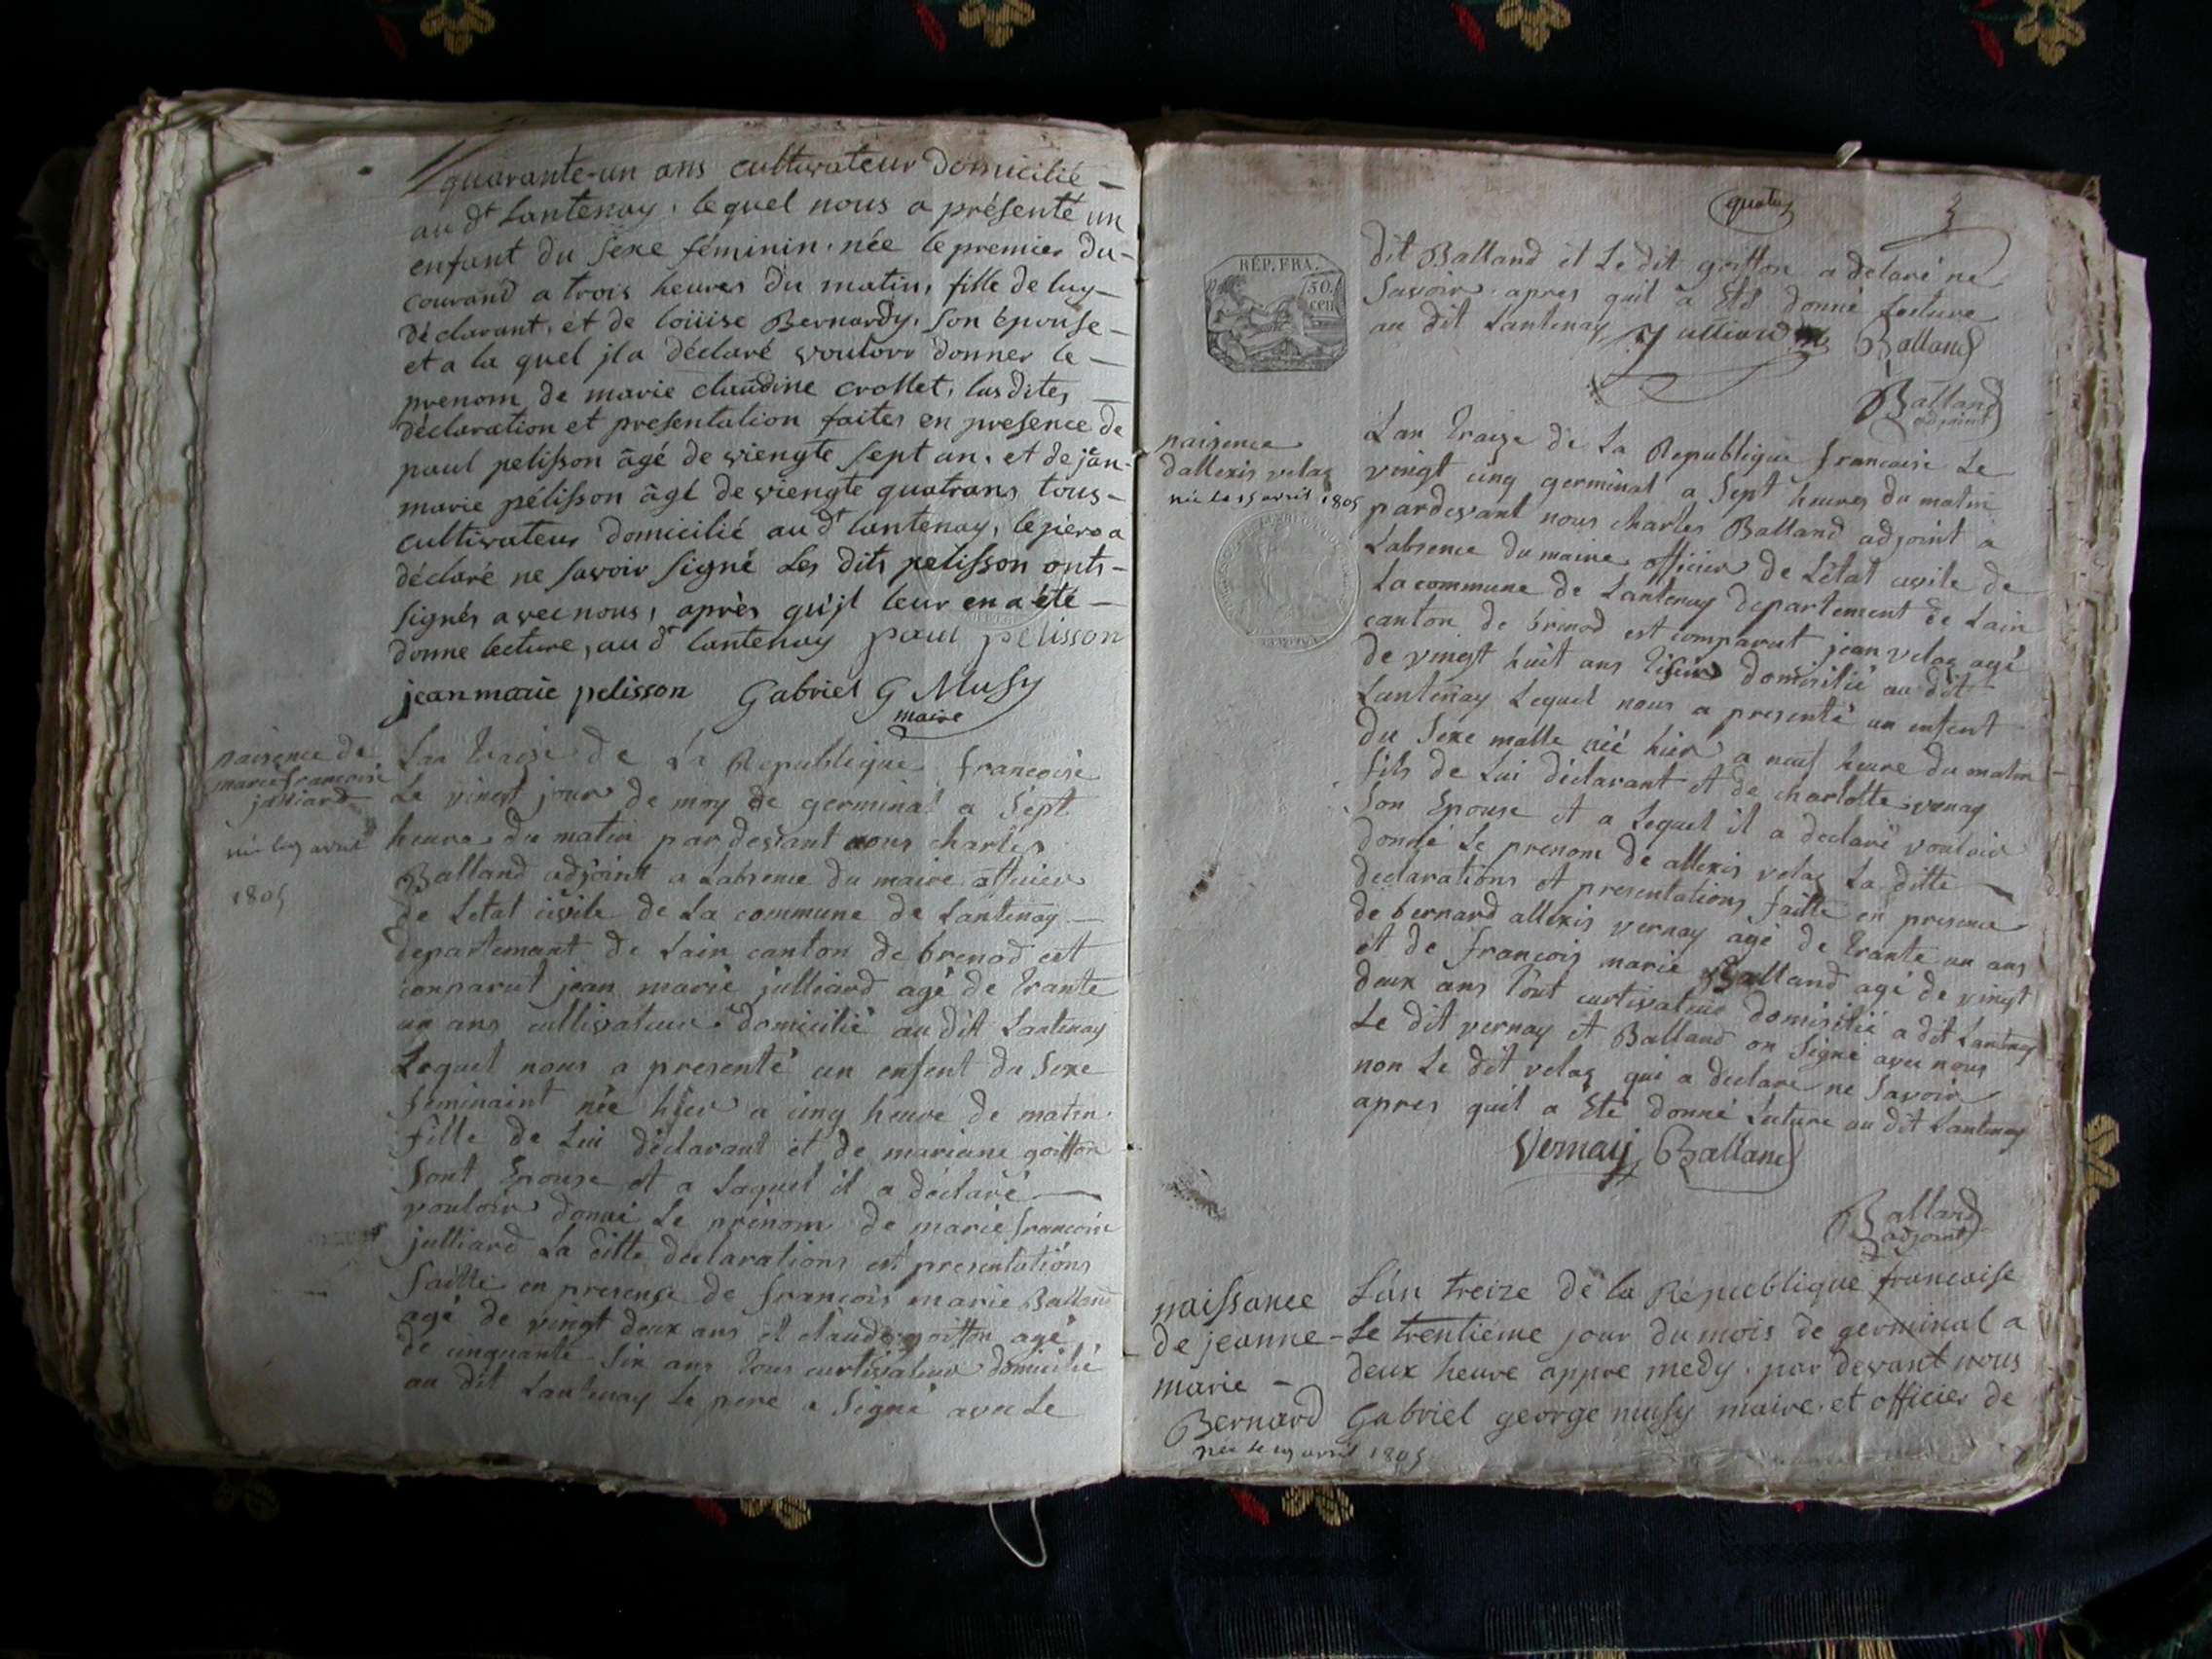 quarante-un ans cultivateur domicilié -
au dt Lantenay, lequel nous a présenté un
enfant du sexe féminin, née le premier du -
courand a trois heures du matin, fille de luy -
déclarant, et de loüise Bernardy, son épouse -
et a la quel jl a déclaré vouloir donner le -
prenom de marie claudine crollet, lesdites -
déclaration et presentation faites en presence de
paul pelisson âgé de viengte sept an, et de jan -
marie pélisson âgé de viengte quatrans tous -
cultivateur domicilié au dt lantenay, le père a
déclaré ne savoir signé Les dits pelisson onts -
signés avec nous, après qu'jl leur en a été -
donne lecture, au dt lantenay paul pelisson
jean marie pelisson Gabriel G Musy
maire
naisence de
marie françoise
julliard
née le 9 avril
1805
Lan traize de La Republique françoise
Le vingt jour de moy de germinal a sept
heure du matin par devant nous charles
Balland adjoint a Labsence du maire officier
de Letat civile de La commune de Lantenay -
departement de Lain canton de brenod est
comparut jean marie julliard agé de trante
un ans cultivateur domicilié au dit Lantenay
Lequel nous a presenté un enfent du sexe
feminaint née hier a cinq heure de matin
fille de Lui déclarant et de mariane goitton
sont Epouse et a Laquel il a déclaré -
vouloir donné Le prénom de marie françoise
julliard La ditte declarations et presentations
faitte en presense de françois marie Balland
agé de vingt deux ans et claude goitton agé
de cinquante six ans tous curtivateur domicilié
au dit Lantenay Le pere a signé avec Le
3
RÉP. FRA.
50.
cen
dit Balland et Le dit goitton a delaré ne
savoir apres quil a Eté donné Lecture
au dit Lantenay julliard Balland
Balland
adjoint
naisence
dallexis velaz
né le 15 avril 1805
Lan traize de La Republique francaise Le
vingt cinq germinal a sept heures du matin
pardevant nous charles Balland adjoint a
Labsence du maire officier de Létat civile de
La commune de Lantenay departement de Lain
canton de brinod est comparut jean velaz agé
de vingt huit ans domisilié au dit
Lantenay Lequel nous a presenté un enfent
du sexe malle néé hier a neuf heure du matin -
fils de Lui déclarant et de charlotte vernay
son Epouse et a Lequel il a declaré vouloir
donné Le prenom de allexis velaz La ditte -
declarations et presentations faitte en presence
de bernard allexis vernay agé de trante un ans
et de françois marie Balland agé de vingt
deux ans tout curtivateur domisilié a dit Lantenay
Le dit vernay et Balland on signé avec nous
non Le dit velaz qui a declare ne savoir
apres quil a Eté donné Lecture au dit Lantenay
Vernay Balland
Balland
adjoint
naissance
de jeanne -
marie -
Bernard
née le 19 avril 1805
L'an treize de la République francaise
Le trentième jour du mois de germinal a
deux heure appre medy, par devant nous
Gabriel george musy maire et officier de